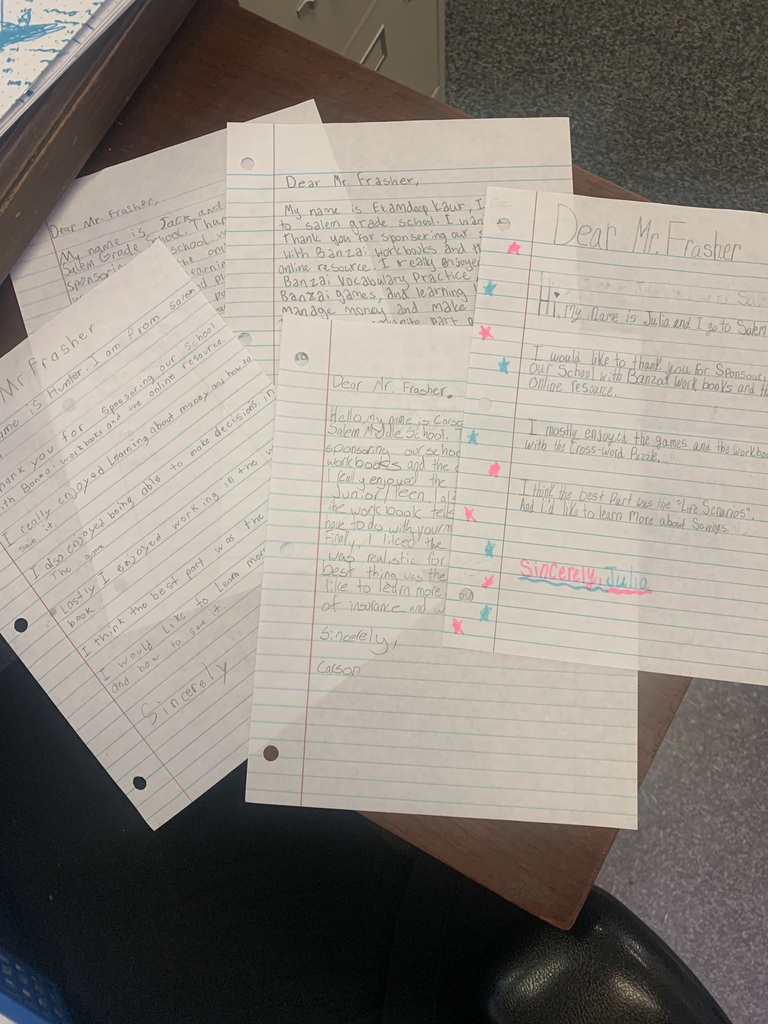 Dear Mr. Frasher,
My name is Jack, and
Salem Grade School. Than
sponsoring school w
the on
earnin
Dear Mr. Frasher,
My name is Ekamdeep Kaur, I
to salem grade school. I wan
Thank you for sponsering our s
with Banzai workbooks and th
online resource. I really enjoyed
Banzai Vocabulary Practice
Banzai games, and learning
manage money and make
part
Mr Frasher
ame is Hunter. I am from Salem
hank you for sponsoring our School
ith Banzai workbooks and the online resource.
I really enjoyed learning about money and how to
save it.
I also enjoyed being able to make decisions in
The game
Lastly I enjoyed working in the w
book.
I think the best part was the
I would Like to Learn mor
and how to save it.
Sincerely
Dear Mr. Frasher.
Hello, my name is Carso
Salem Middle School.
sponsoring our schoo
workbooks and the o
I really enjoyed the
Junior/Teen.
the workbook tells
have to do with your m
Finaly, I liked the
was realistic for
best thing was the
like to learn more
of insurance and w
Sincerely,
Carson
Dear Mr. Frasher
Hi, My name is Julia and I go to Salem
I would like to thank you for Sponsori
our School with Banzai work books and th
online resource.
I mostly enjoyed the games and the workboo
with the Cross-word Puzzle.
I think the best Part was the "Life Scenarios".
And I'd like to learn more about Savings.
Sincerely, Julia